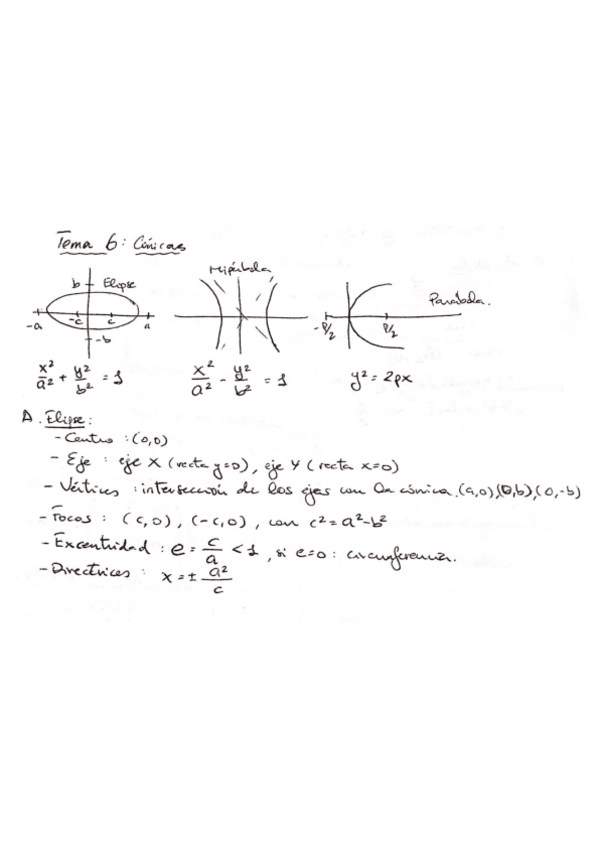 Tema 6: Cónicas
b Elipse
-a -c c a
-b
Hipérbola
Parábola.
-P/2 P/2
x²/a² + y²/b² = 1
x²/a² - y²/b² = 1
y² = 2px
A. Elipse:
- Centro : (0,0)
- Eje : eje X (recta y=0), eje Y (recta x=0)
- Vértices : intersección de los ejes con la cónica. (a,0),(0,b),(0,-b)
- Focos : (c,0), (-c,0), con c²=a²-b²
- Excentridad : e = c/a < 1, si e=0: circunferencia.
- Directrices : x = ± a²/c